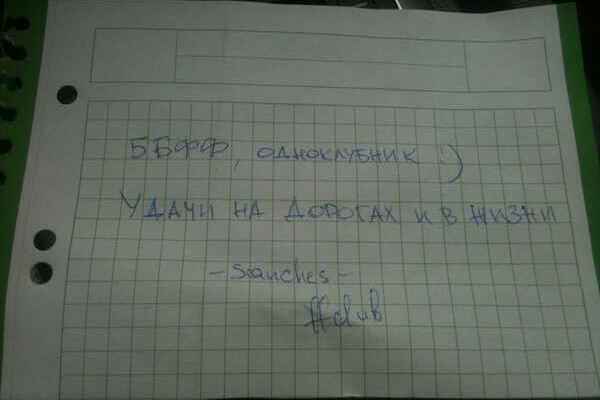 ББФФ, одноклубник :)
Удачи на дорогах и в жизни
- Sanches -
ffclub